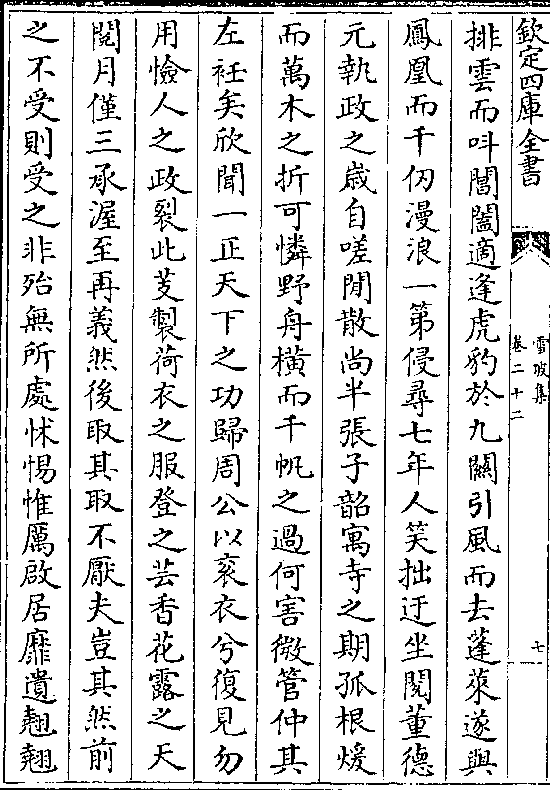 欽定四庫全書
雪坡集
卷二十二
七
排雲而呌閶闔適逢虎豹於九關引風而去蓬萊遂與
鳳凰而千仭漫浪一第侵尋七年人笑拙迂坐閱董德
元執政之嵗自嗟閒散尚半張子韶寓寺之期孤根煖
而萬木之折可憐野舟橫而千帆之過何害微管仲其
左衽矣欣聞一正天下之功歸周公以衮衣兮復見勿
用憸人之政裂此芰製荷衣之服登之芸香花露之天
閱月僅三承渥至再義然後取其取不厭夫豈其然前
之不受則受之非殆無所處怵惕惟厲啟居靡遺翹翹